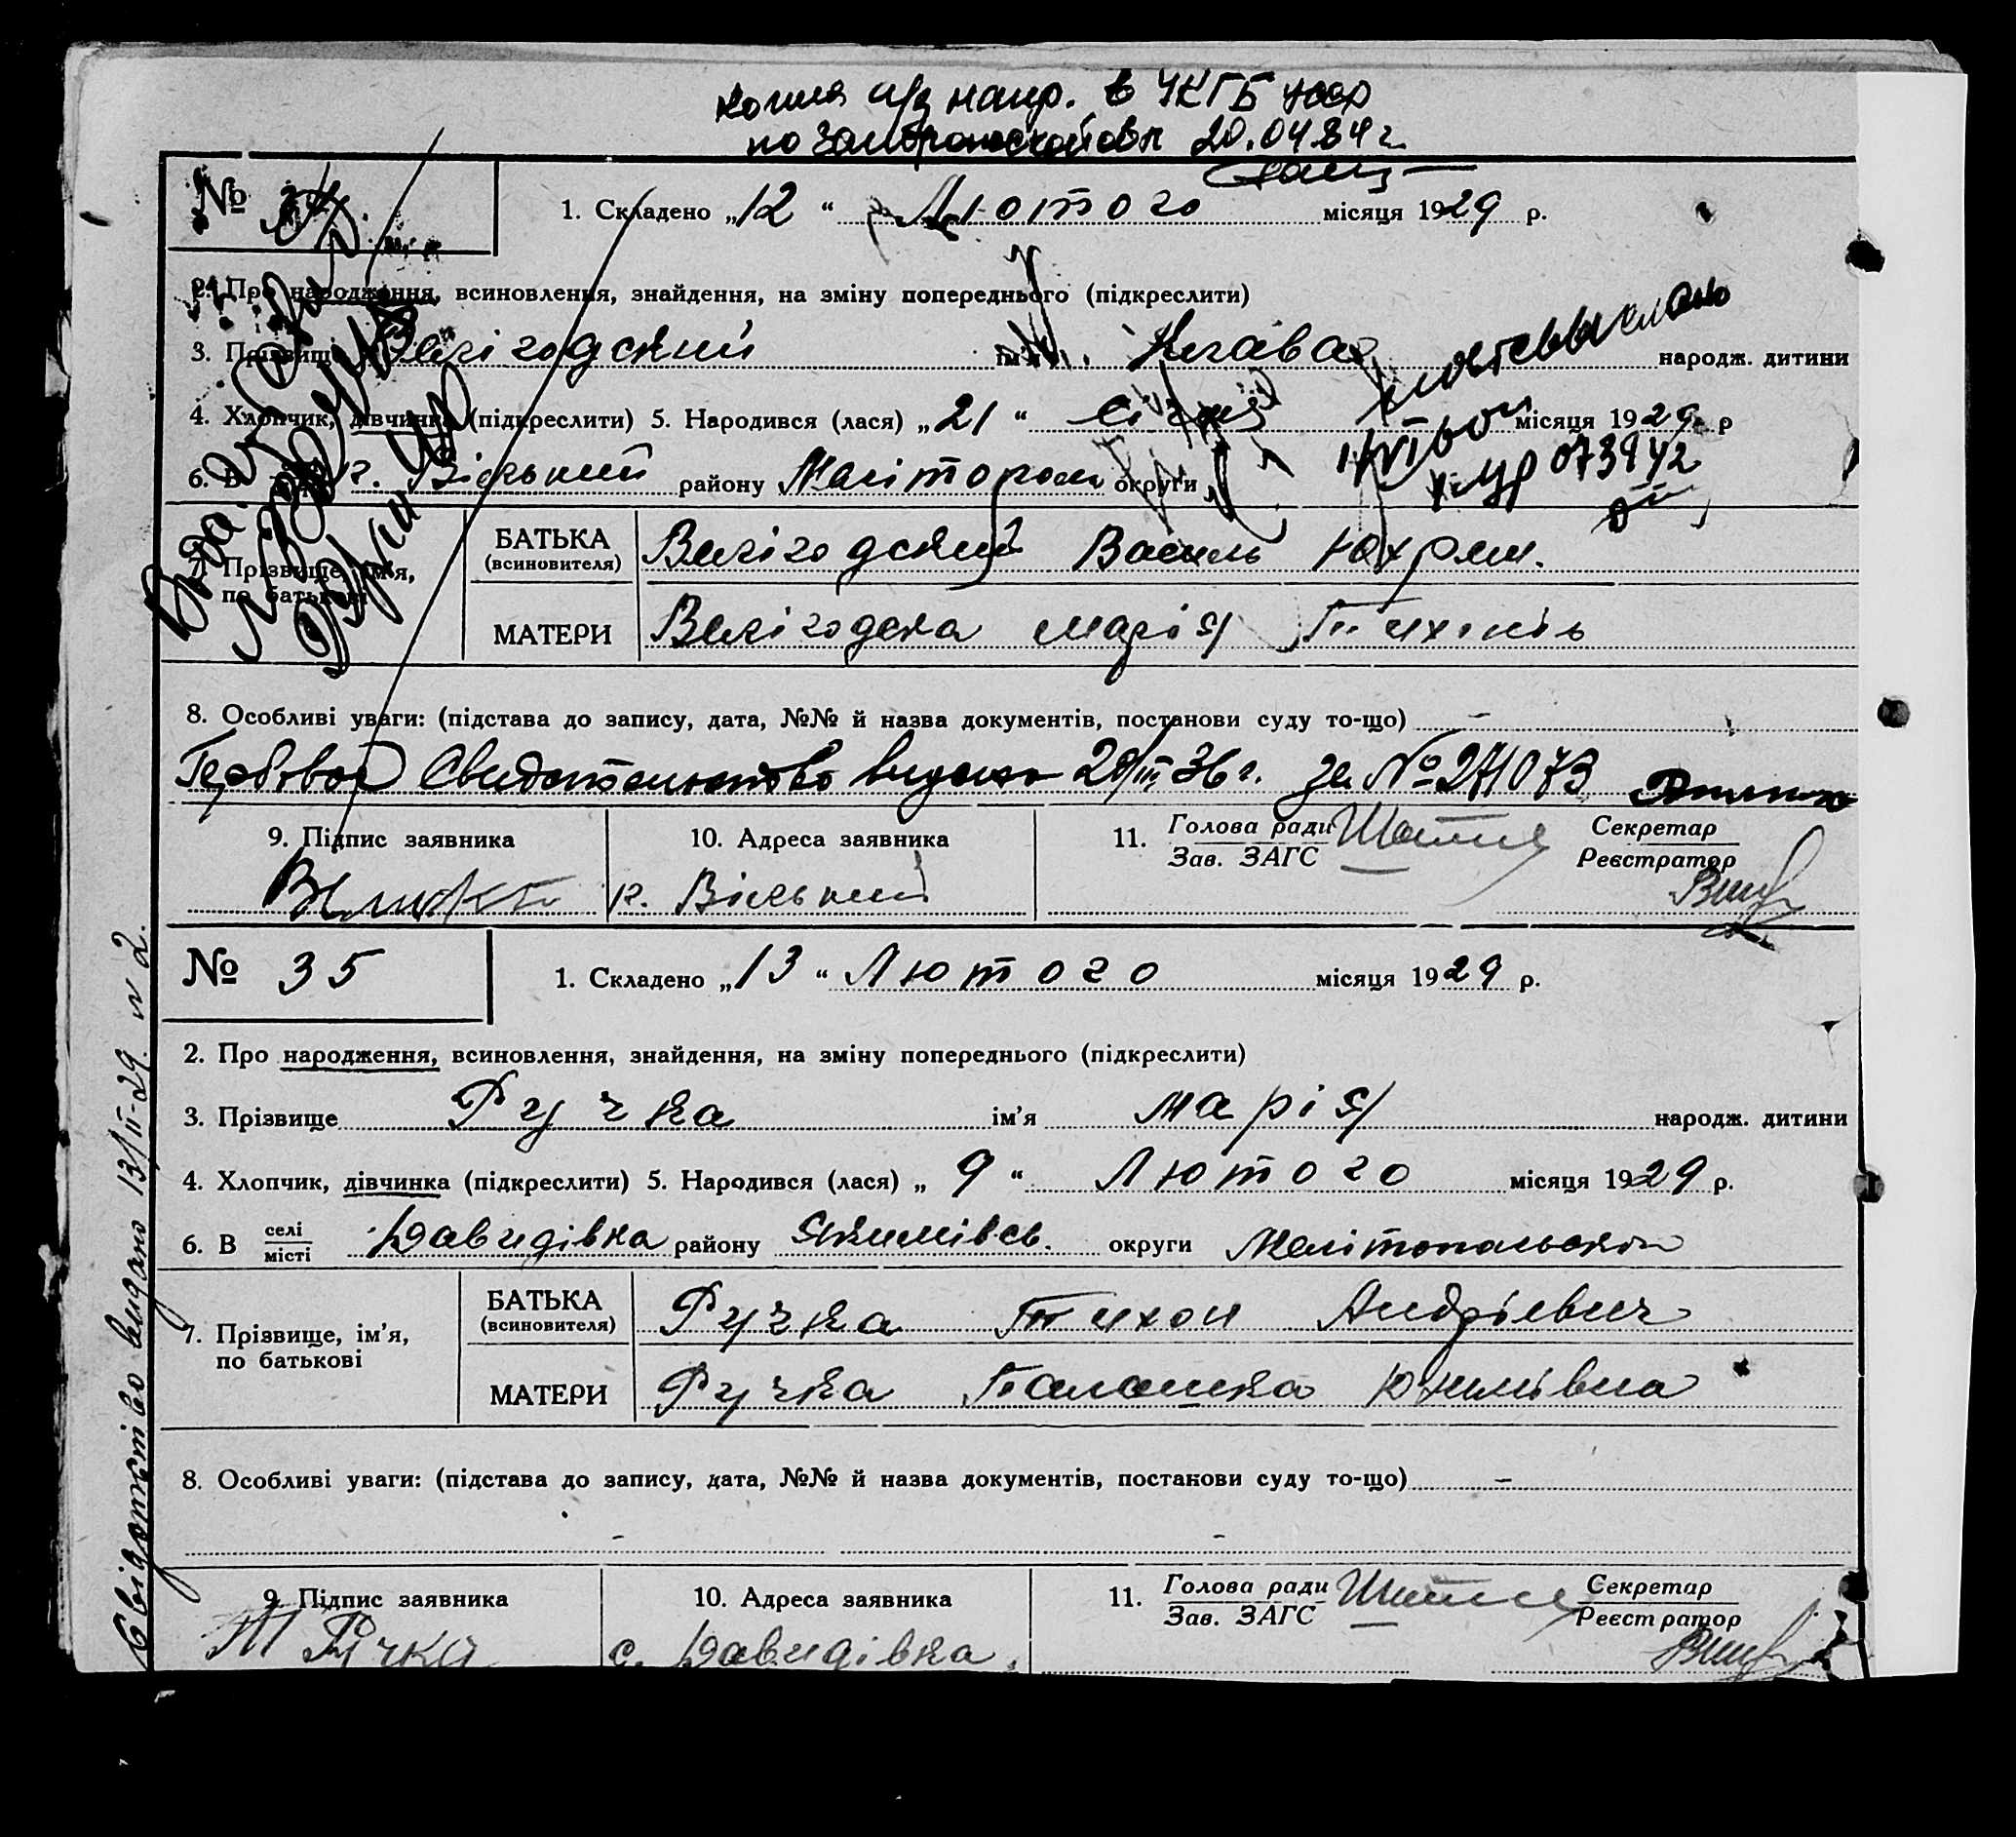 копия а/з напр. в УКГБ УССР
по Запорожской обл 20.04.84 г.
№ 34
1. Складено „12 “ Лютого місяця 1929 р.
2. Про народження, всиновлення, знайдення, на зміну попереднього (підкреслити)
3. Прізвище Велігодский ім'я народж. дитини
4. Хлопчик, дівчинка (підкреслити) 5. Народився (лася) „21 “ місяця 1929 р
6. В х. Вільний району Мелітополь округи
073942
7. Прізвище, ім'я, по батькові
БАТЬКА (всиновителя) Велігодский Василь Юхрем.
МАТЕРИ Велігодска Марія Тихонів
8. Особливі уваги: (підстава до запису, дата, №№ й назва документів, постанови суду то-що) –
Гербовое Свидетельство выдано 29/III 36 г. за № 271073
9. Підпис заявника 10. Адреса заявника 11. Голова ради Секретар
Зав. ЗАГС Реєстратор
х. Вільний
Свідотство видано 13/II-29. № 2.
№ 35
1. Складено „13 “ Лютого місяця 1929 р.
2. Про народження, всиновлення, знайдення, на зміну попереднього (підкреслити)
3. Прізвище Ручка ім'я Марія народж. дитини
4. Хлопчик, дівчинка (підкреслити) 5. Народився (лася) „ 9 “ Лютого місяця 1929 р.
6. В селі місті Давидівка району Якимівсь. округи Мелітопольскої
7. Прізвище, ім'я, по батькові
БАТЬКА (всиновителя) Ручка Тихон Андріевич
МАТЕРИ Ручка Палашка Юхимівна
8. Особливі уваги: (підстава до запису, дата, №№ й назва документів, постанови суду то-що) –
9. Підпис заявника 10. Адреса заявника 11. Голова ради Секретар
Зав. ЗАГС Реєстратор
Т Ручка с. Давидівка